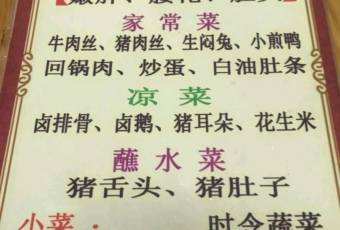 家常菜
牛肉丝、猪肉丝、生闷兔、小煎鸭
回锅肉、炒蛋、白油肚条
凉菜
卤排骨、卤鹅、猪耳朵、花生米
蘸水菜
猪舌头、猪肚子
小菜：时令蔬菜